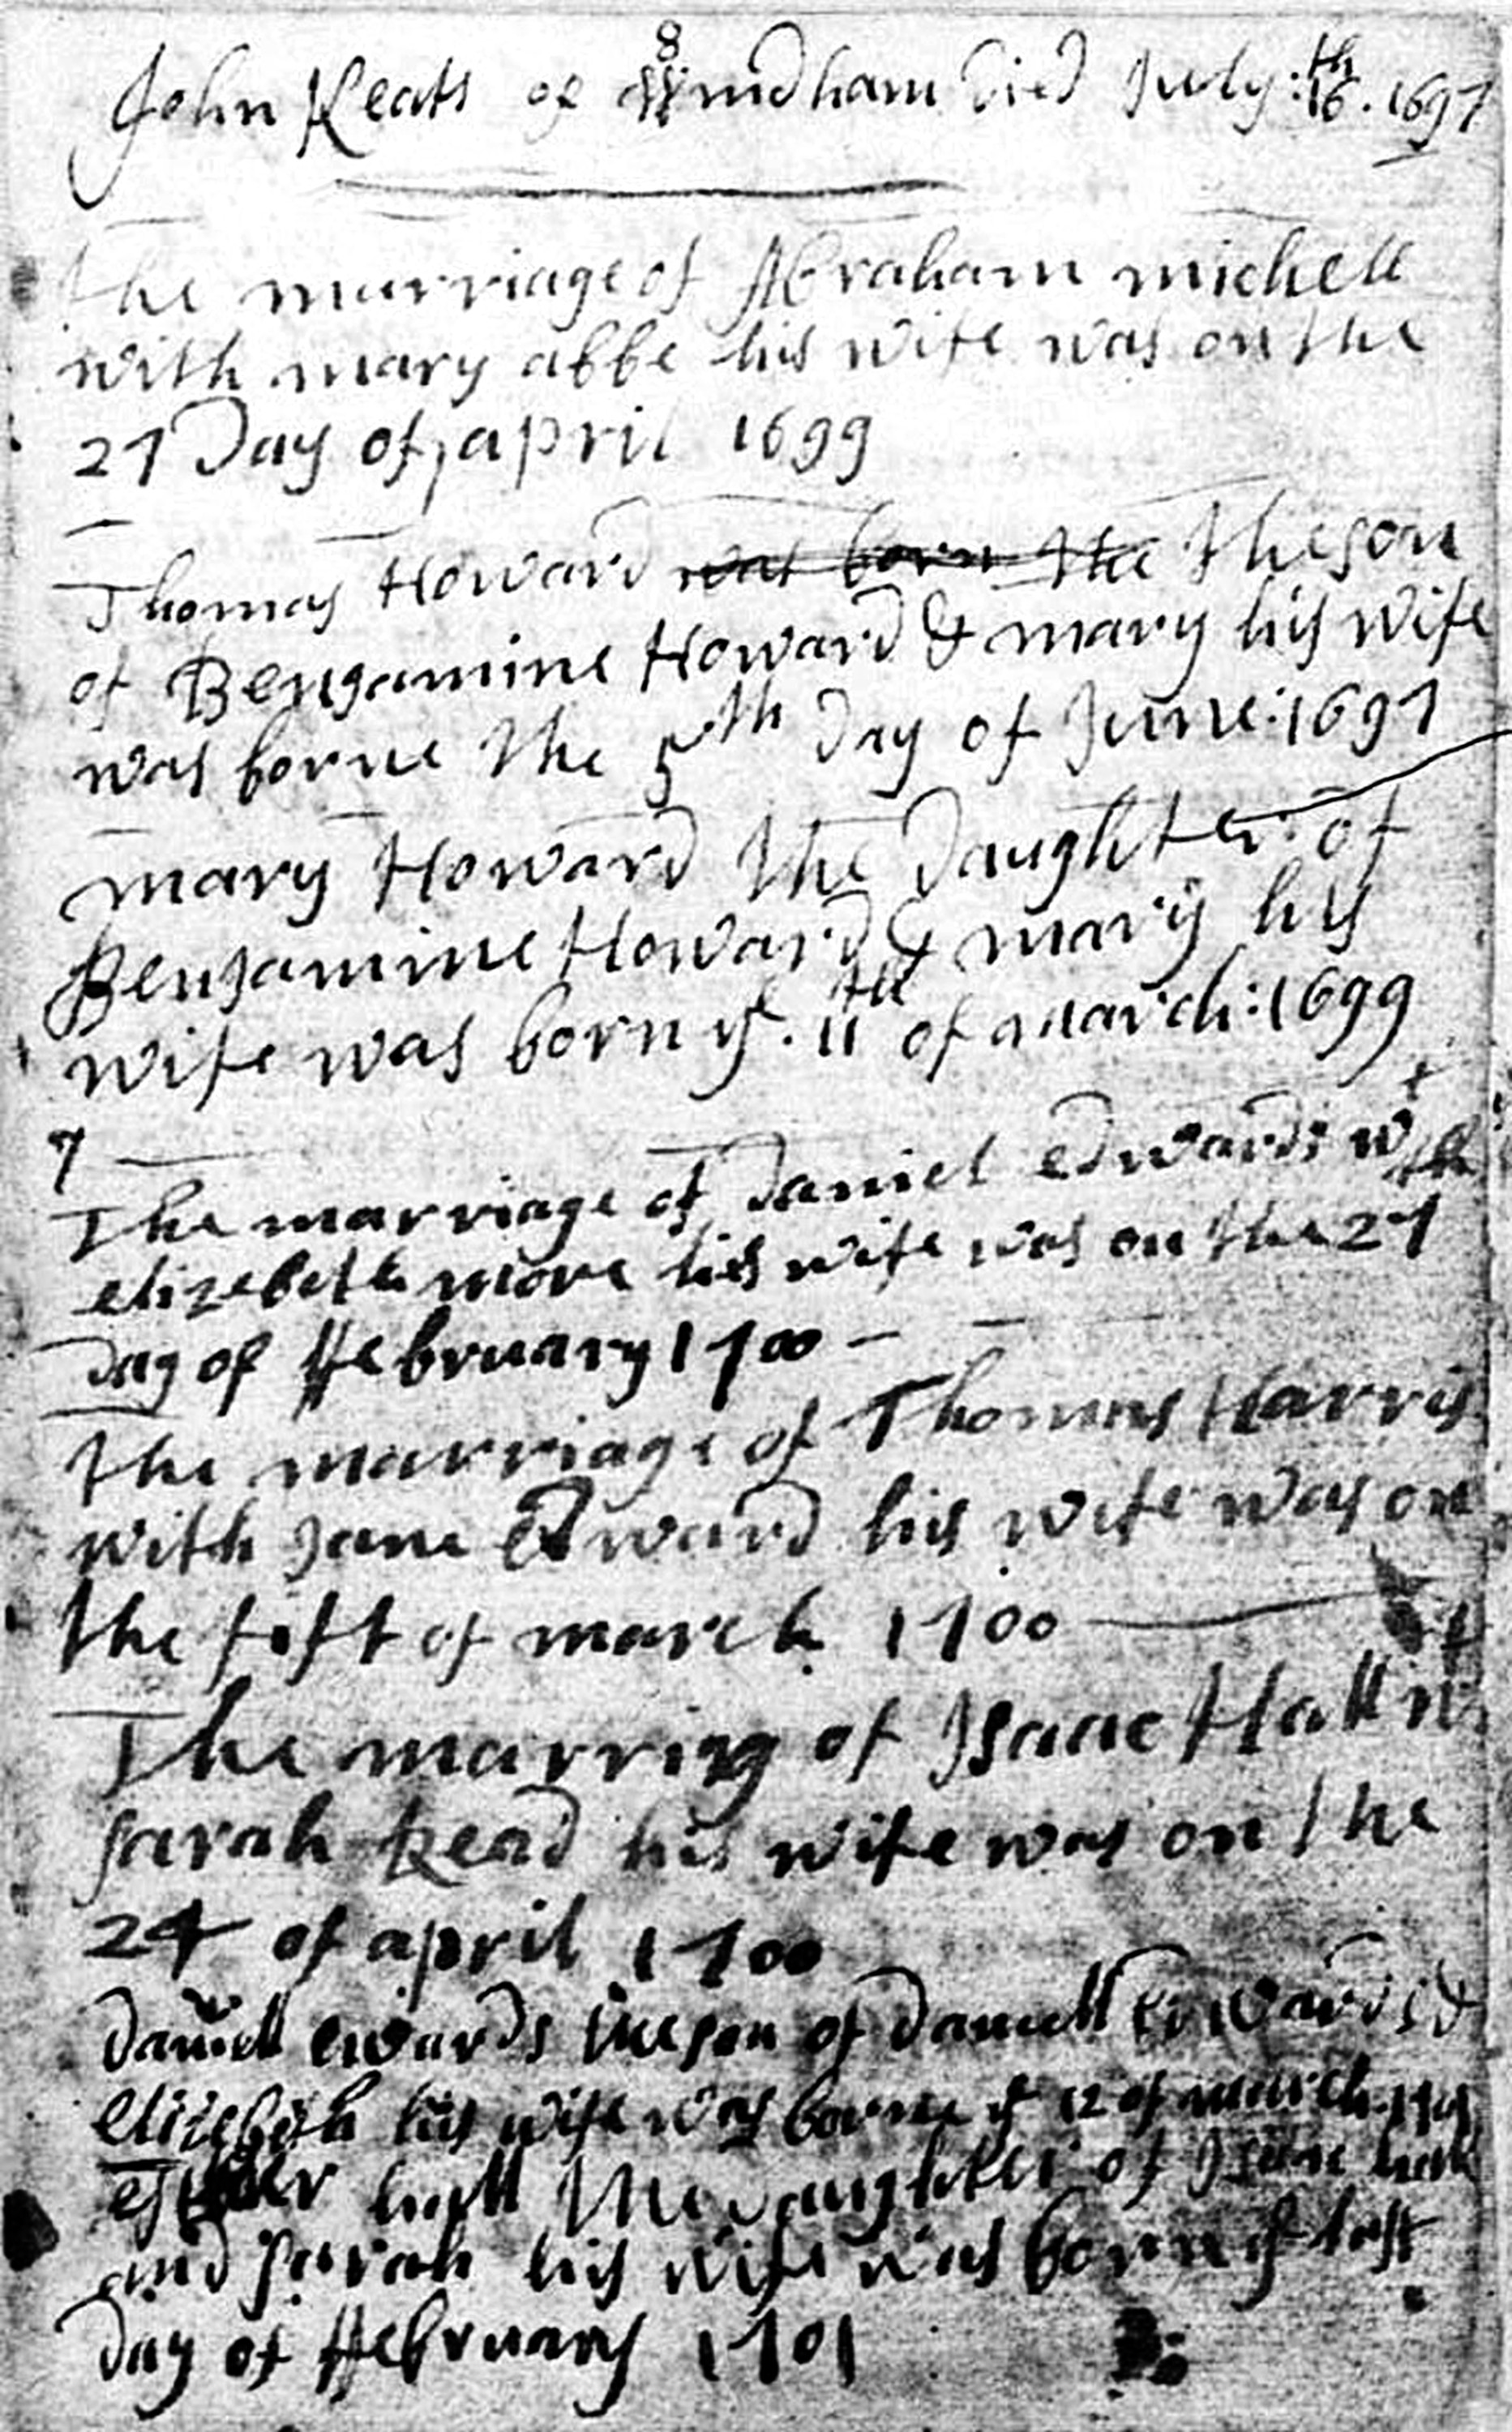 8
John Keats of Windham Died July: 16th. 1697
The marriage of Abraham michell
with mary abbe his wife was on the
27 Day of april 1699
Thomas Howard was born the the son
of Bengamine Howard & mary his wife
was borne the 5th Day of June: 1697
mary Howard the Daughter of
Bengamine Howard & mary his
wife was born ye. 11th of march: 1699
7
The marriage of Daniel edwards with
elizebeth more his wife was on the 27
Day of ffebruary 1700
the marriage of Thomas Harris
with Jane Edward his wife was on
the fift of march 1700
The marriag of Isaac Hall
sarah Read his wife was on the
24 of april 1700
Daniell edwards the son of Daniell Edwards &
elizebeth his wife was borne ye 12 of march 1701
esther hall the Daughter of Isaac hall
and sarah his wife was born ye last
Day of ffebruary 1701